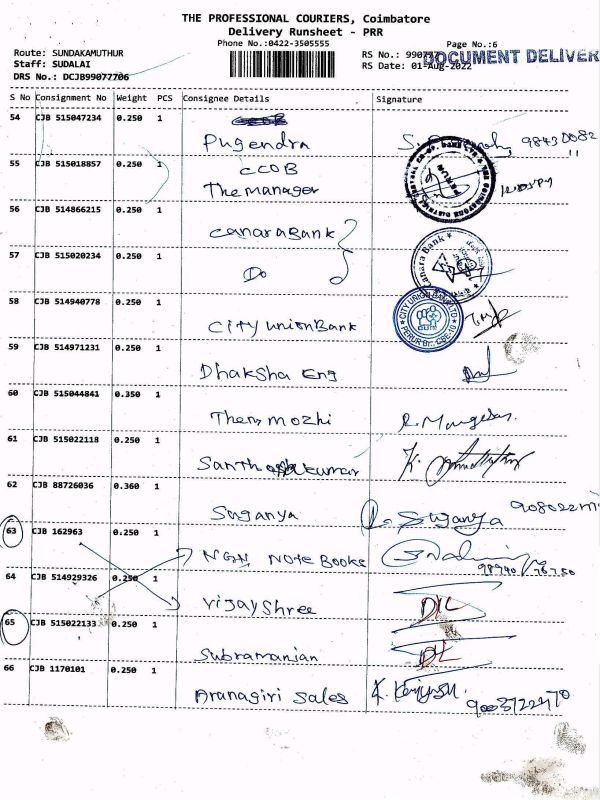 THE PROFESSIONAL COURIERS, Coimbatore
Delivery Runsheet - PRR
Phone No.:0422-3505555
Page No.:6
Route: SUNDAKAMUTHUR
Staff: SUDALAI
DRS No.: DCJB99077706
RS No.: 990777
RS Date: 01-Aug-2022
DOCUMENT DELIVER
S No Consignment No Weight PCS Consignee Details Signature
54 CJB 515047234 0.250 1
Pugendra 98430082
55 CJB 515018857 0.250 1
CCOB
The manager
56 CJB 514866215 0.250 1
Canara Bank
57 CJB 515020234 0.250 1
Do
Canara Bank
58 CJB 514940778 0.250 1
City Union Bank
CITY UNION BANK LTD
PERUR BR., CBE-10
59 CJB 514971231 0.250 1
Dhaksha Eng
60 CJB 515044841 0.350 1
Then mozhi
61 CJB 515022118 0.250 1
Santhoshkumar
62 CJB 88726036 0.360 1
Suganya
63 CJB 162963 0.250 1
NGH Note Books
64 CJB 514929326 0.250 1
Vijay Shree
65 CJB 515022133 0.250 1
Subramanian
66 CJB 1170101 0.250 1
Aranagiri Sales